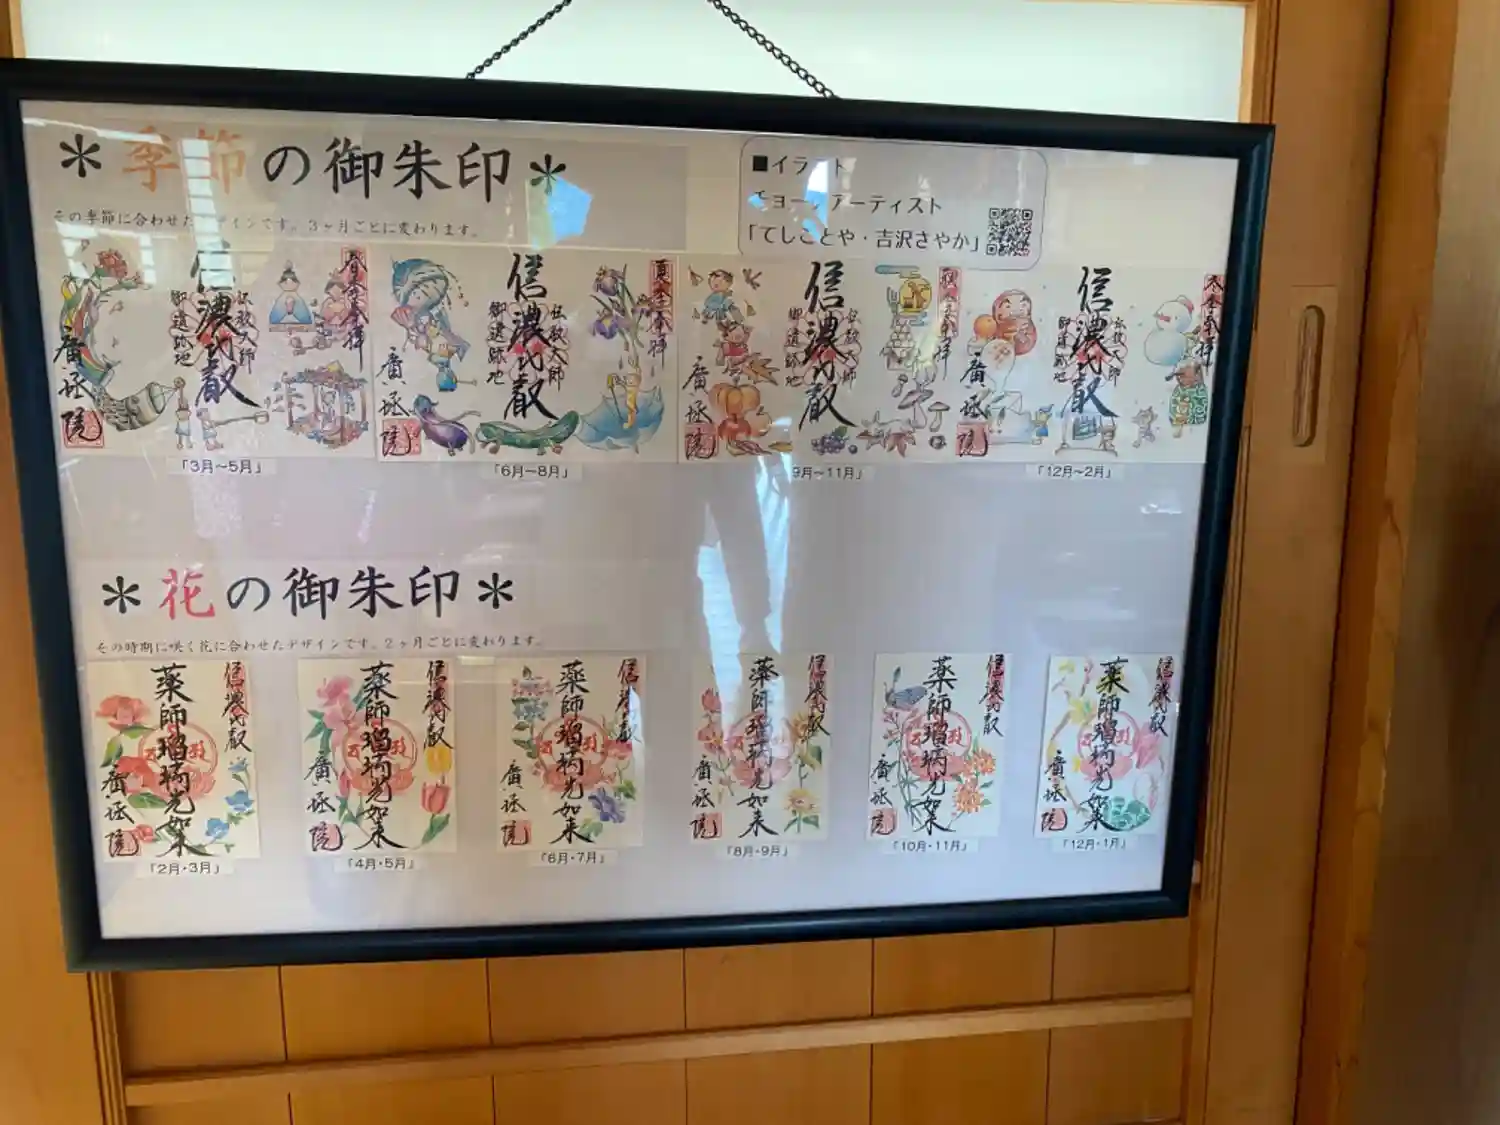 ＊季節の御朱印＊
その季節に合わせたデザインです。3ヶ月ごとに変わります。
■イラスト
チョークアーティスト
「てしごとや・吉沢さやか」
春季奉拝
信濃比叡
伝教大師
御遺跡地
廣拯院
「3月～5月」
夏季奉拝
信濃比叡
伝教大師
御遺跡地
廣拯院
「6月～8月」
秋季奉拝
信濃比叡
伝教大師
御遺跡地
廣拯院
9月～11月」
冬季奉拝
信濃比叡
伝教大師
御遺跡地
廣拯院
「12月～2月」
＊花の御朱印＊
その時期に咲く花に合わせたデザインです。2ヶ月ごとに変わります。
信濃比叡
薬師瑠璃光如来
廣拯院
「2月・3月」
信濃比叡
薬師瑠璃光如来
廣拯院
「4月・5月」
信濃比叡
薬師瑠璃光如来
廣拯院
「6月・7月」
信濃比叡
薬師瑠璃光如来
廣拯院
「8月・9月」
信濃比叡
薬師瑠璃光如来
廣拯院
「10月・11月」
信濃比叡
薬師瑠璃光如来
廣拯院
「12月・1月」